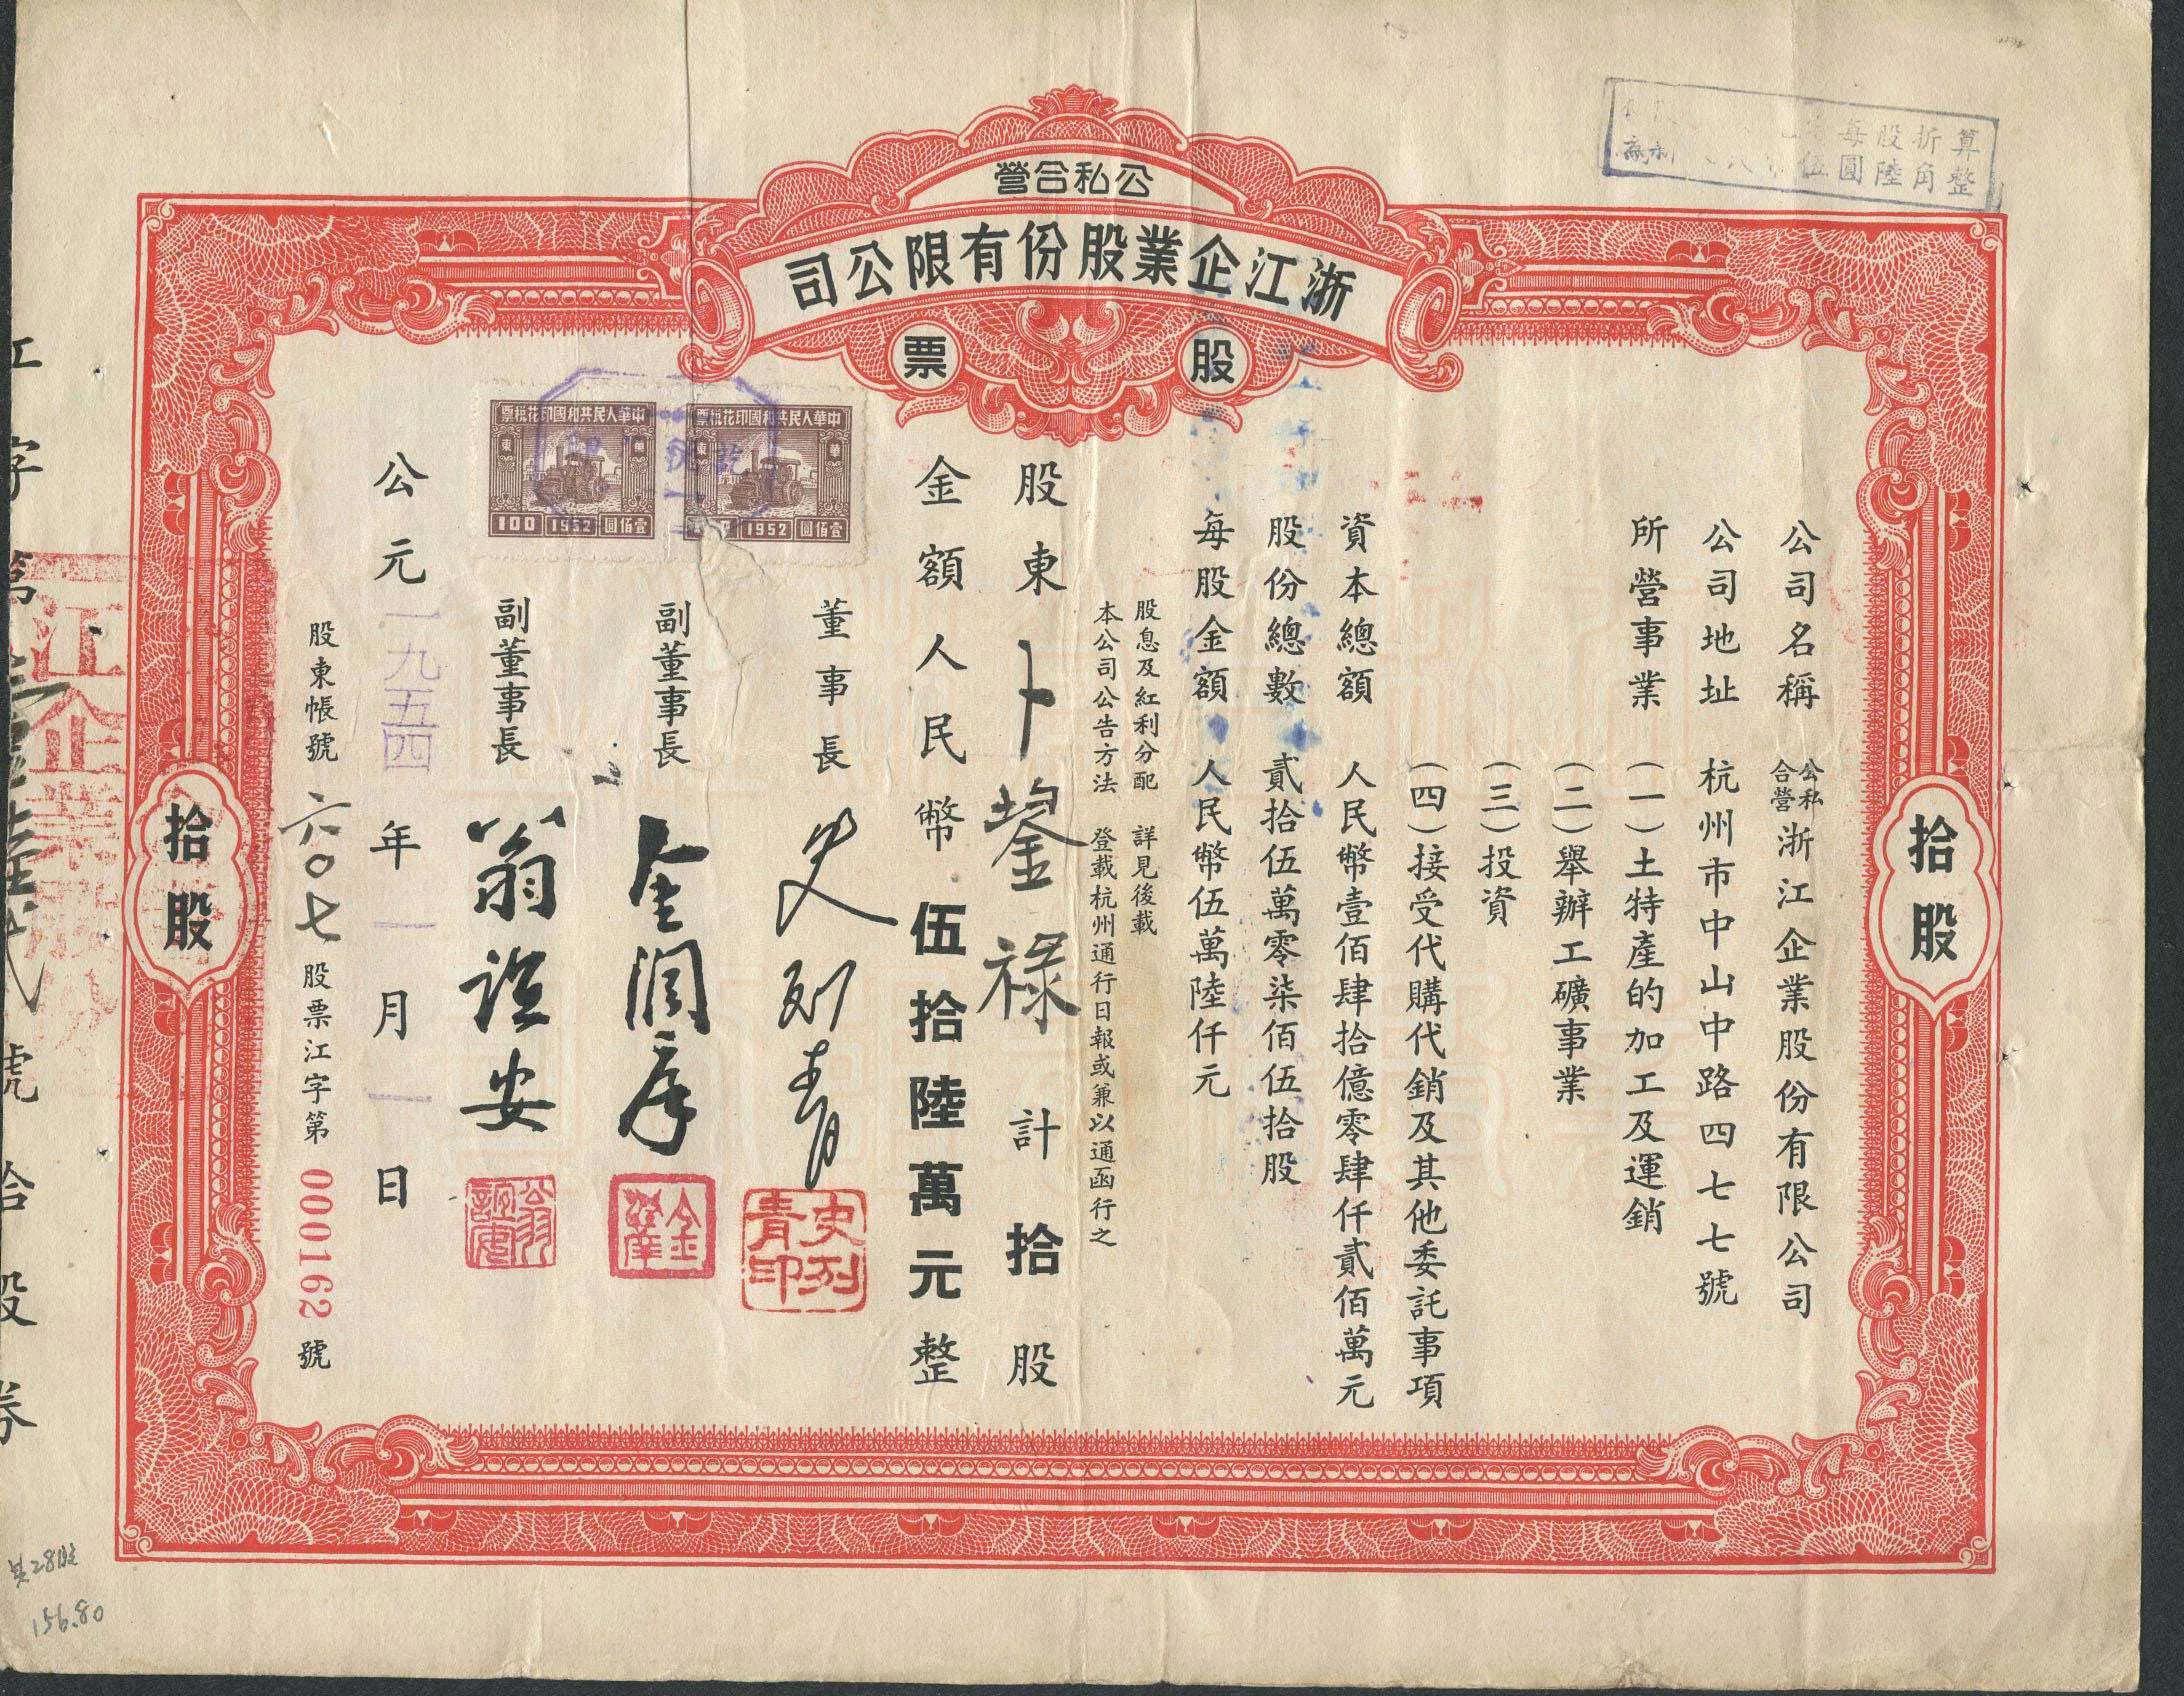 公私合營
浙江企業股份有限公司
股票
每股折算
伍圓陸角整
公司名稱 公私合營浙江企業股份有限公司
公司地址 杭州市中山中路四七七號
所營事業 (一)土特產的加工及運銷
(二)舉辦工礦事業
(三)投資
(四)接受代購代銷及其他委託事項
資本總額 人民幣壹佰肆拾億零肆仟貳佰萬元
股份總數 貳拾伍萬零柒佰伍拾股
每股金額 人民幣伍萬陸仟元
股息及紅利分配 詳見後載
本公司公告方法 登載杭州通行日報或兼以通函行之
股東 卜鋆祿 計拾股
金額人民幣伍拾陸萬元整
董事長 史列青
史列青印
副董事長 金潤庠
副董事長 翁誼安
中華人民共和國印花稅票
華東
壹佰圓 1952
中華人民共和國印花稅票
華東
壹佰圓 1952 100
公元一九五四年一月一日
股東帳號 六〇七 股票江字第 000162 號
拾股
拾股
江企業股份
江字第
號拾股券
共28股
156.80